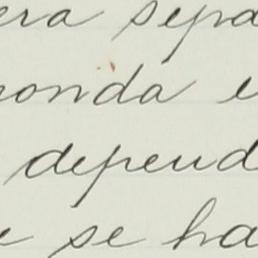 era sepa
ronda e
depend
e se ha